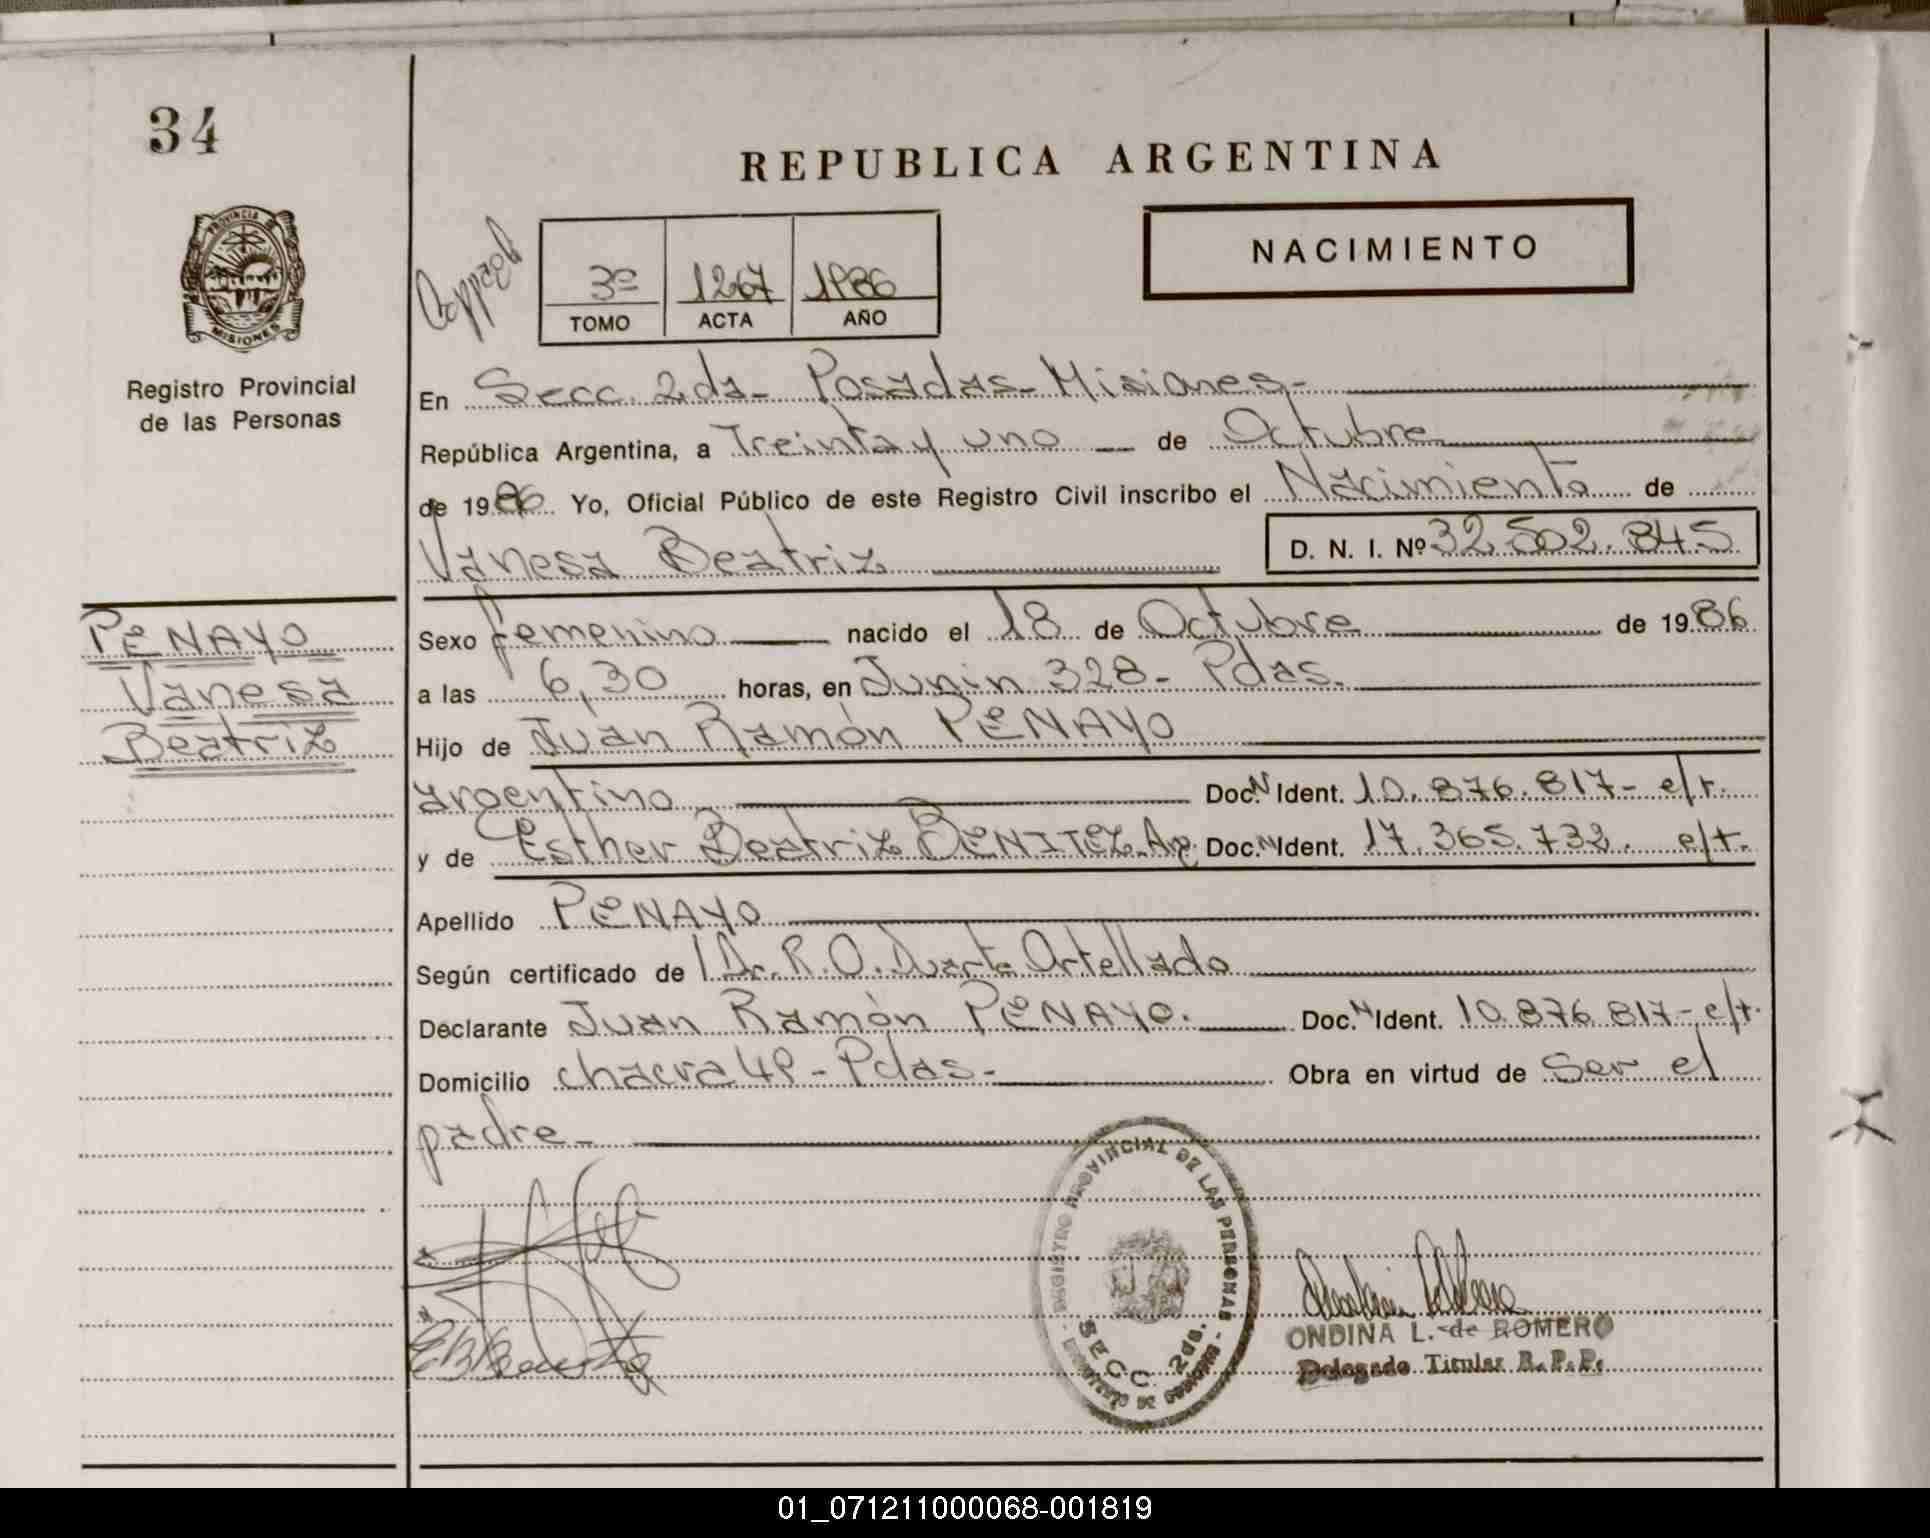 34
REPUBLICA ARGENTINA
PROVINCIA DE
MISIONES
Registro Provincial
de las Personas
3º 1267 1986
TOMO ACTA AÑO
NACIMIENTO
En Secc. 2da - Posadas - Misiones -
República Argentina, a Treinta y uno de Octubre
de 1986 Yo, Oficial Público de este Registro Civil inscribo el Nacimiento de
Vanesa Beatriz D. N. I. Nº 32.502.845
PENAYO
Vanesa
Beatriz
Sexo femenino nacido el 18 de Octubre de 1986
a las 6,30 horas, en Junin 328 - Pdas.
Hijo de Juan Ramón PENAYO
argentino Doc. N Ident. 10.876.817 - e/t.
y de Esther Beatriz BENITEZ. Arg. Doc. N Ident. 17.365.732. e/t.
Apellido PENAYO
Según certificado de Dr. R. O. Duarte Ortellado
Declarante Juan Ramón PENAYO. Doc. N Ident. 10.876.817 - e/t.
Domicilio chacra 49 - Pdas - Obra en virtud de Ser el
padre -
REGISTRO PROVINCIAL DE LAS PERSONAS
SECC. 2da.
ONDINA L. de ROMERO
Delegado Titular R. P. P.
01_071211000068-001819